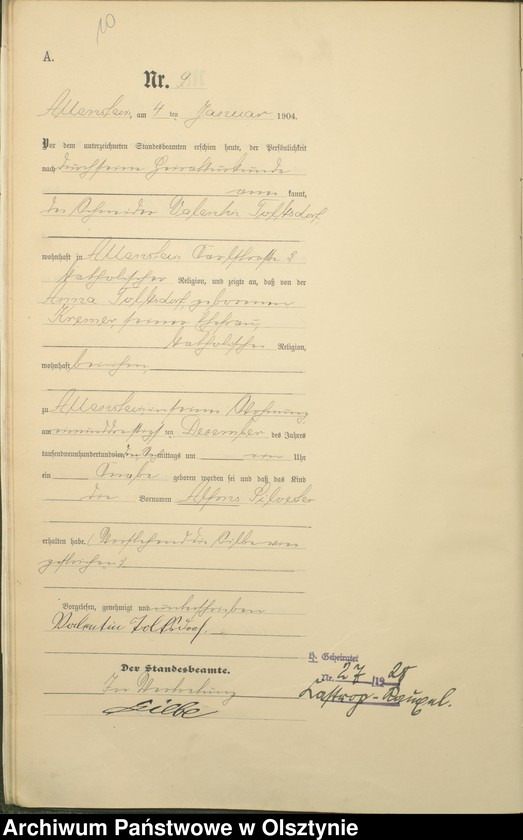 10
A.
Nr. 9
Allenstein, am 4 ten Januar 1904.
Vor dem unterzeichneten Standesbeamten erschien heute, der Persönlichkeit
nach durch seine Heiratsurkunde
kannt,
der Schneider Valentin Tolksdorf
wohnhaft in Allenstein
katholischer Religion, und zeigte an, daß von der
Anna Tolksdorf, geborenen
Kremer, seiner Ehefrau,
katholischer Religion,
wohnhaft bei ihm
zu Allenstein in seiner Wohnung
am ein und dreißigsten Dezember des Jahres
tausendneunhundert mittags um Uhr
ein Knabe geboren worden sei und daß das Kind
Vornamen Alfons Silvester
erhalten habe. (Vorstehend die Silbe
gestrichen)
Vorgelesen, genehmigt und unterschrieben
Valentin Tolksdorf.
Der Standesbeamte.
In Vertretung
Geheiratet
Nr. 27/1928
Castrop-Rauxel.
Archiwum Państwowe w Olsztynie